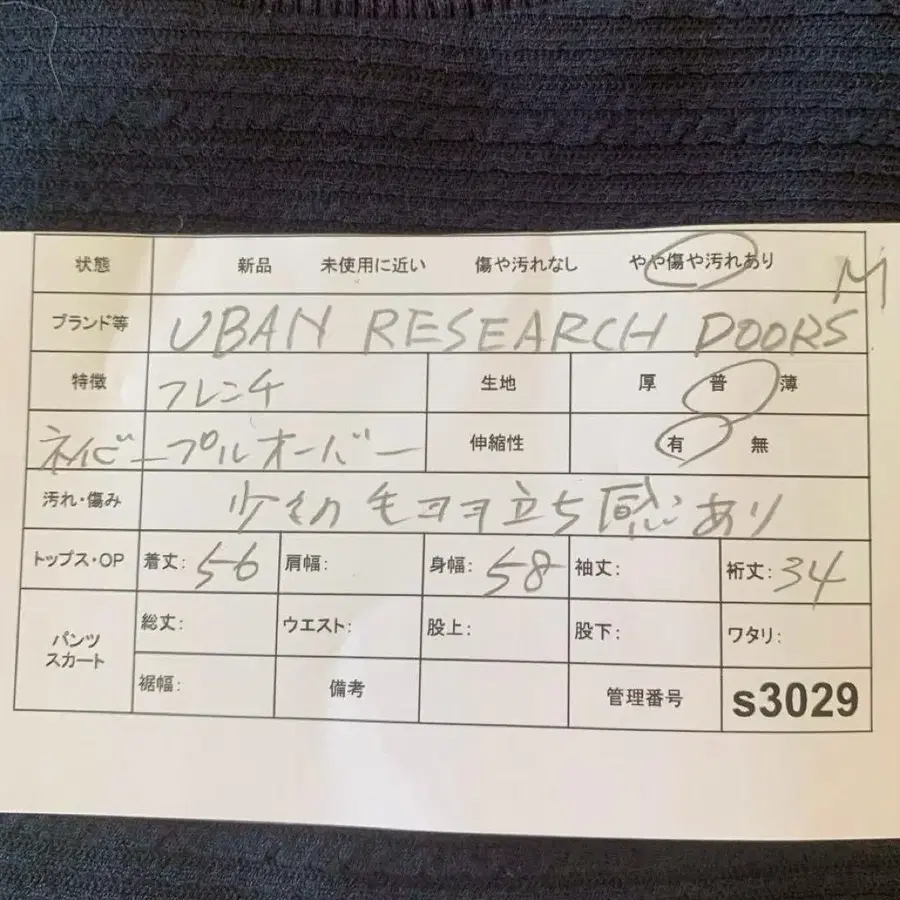 状態 新品 未使用に近い 傷や汚れなし やや傷や汚れあり M
ブランド等 UBAN RESEARCH DOORS
特徴 フレンチ 生地 厚 普 薄
ネイビープルオーバー 伸縮性 有 無
汚れ・傷み 少々の毛ヨヨ立ち感あり
トップス・OP 着丈: 56 肩幅: 身幅: 58 袖丈: 裄丈: 34
パンツ スカート 総丈: ウエスト: 股上: 股下: ワタリ:
裾幅: 備考 管理番号 s3029